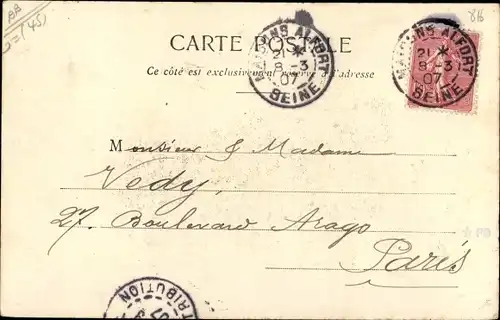 BB
=(45)
816
CARTE POSTALE
Ce côté est exclusivement réservé à l'adresse
MAISONS ALFORT
21 *
8 -3
07
SEINE
MAISONS ALFORT
21 *
8 -3
07
SEINE
Monsieur & Madame
Vedy,
27. Boulevard Arago
Paris
DISTRIBUTION
07